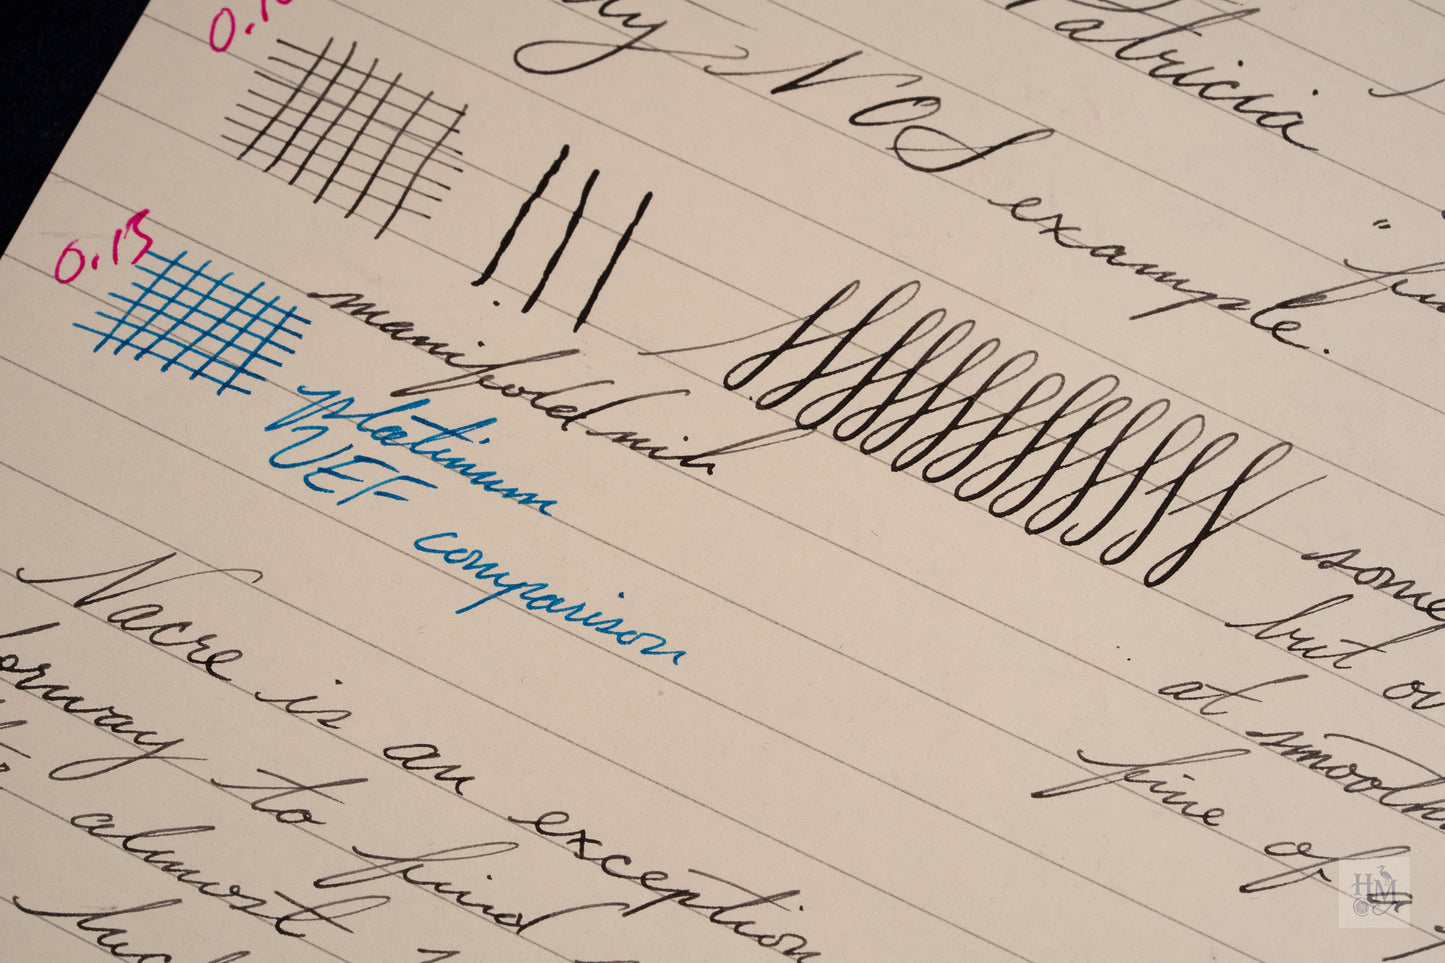 Patricia
NOS example.
0.15
manifold nib
platinum
UEF comparison
some
but
at smooth
fine of
Nacre is an exception
to find
almost
HM